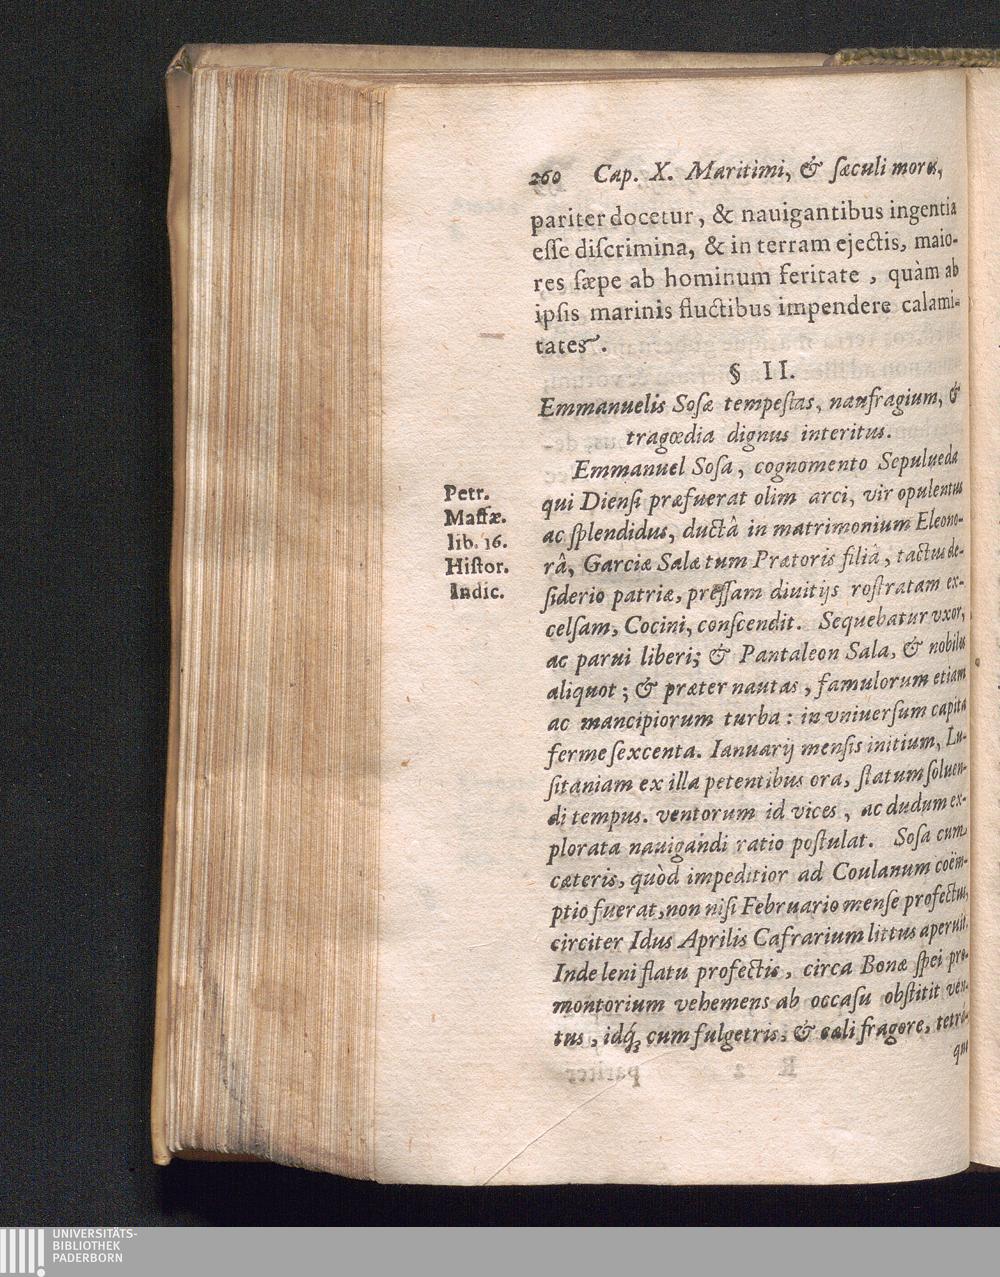 260 Cap. X. Maritimi, & sæculi mores,
pariter docetur, & nauigantibus ingentia
esse discrimina, & in terram ejectis, maio-
res sæpe ab hominum feritate, quàm ab
ipsis marinis fluctibus impendere calami-
tates.
§ II.
Emmanuelis Sosæ tempestas, naufragium, &
tragœdia dignus interitus.
Emmanuel Sosa, cognomento Sepulueda
qui Diensi præfuerat olim arci, vir opulentus
ac splendidus, ductâ in matrimonium Eleono-
râ, Garciæ Salæ tum Prætoris filiâ, tactus de-
siderio patriæ, pressam diuitijs rostratam ex-
celsam, Cocini, conscendit. Sequebatur vxor,
ac parui liberi; & Pantaleon Sala, & nobiles
aliquot; & præter nautas, famulorum etiam
ac mancipiorum turba: in vniuersum capita
ferme sexcenta. Ianuarij mensis initium, Lu-
sitaniam ex illa petentibus ora, statum soluen-
di tempus. ventorum id vices, ac dudum ex-
plorata nauigandi ratio postulat. Sosa cum
cæteris, quòd impeditior ad Coulanum coëm-
ptio fuerat, non nisi Februario mense profectus,
circiter Idus Aprilis Cafrarium littus aperuit.
Inde leni flatu profectis, circa Bonæ spei pro-
montorium vehemens ab occasu obstitit ven-
tus, idq́; cum fulgetris, & cæli fragore, tetrá-
que
Petr.
Maffæ.
lib. 16.
Histor.
Indic.
UNIVERSITÄTS-
BIBLIOTHEK
PADERBORN